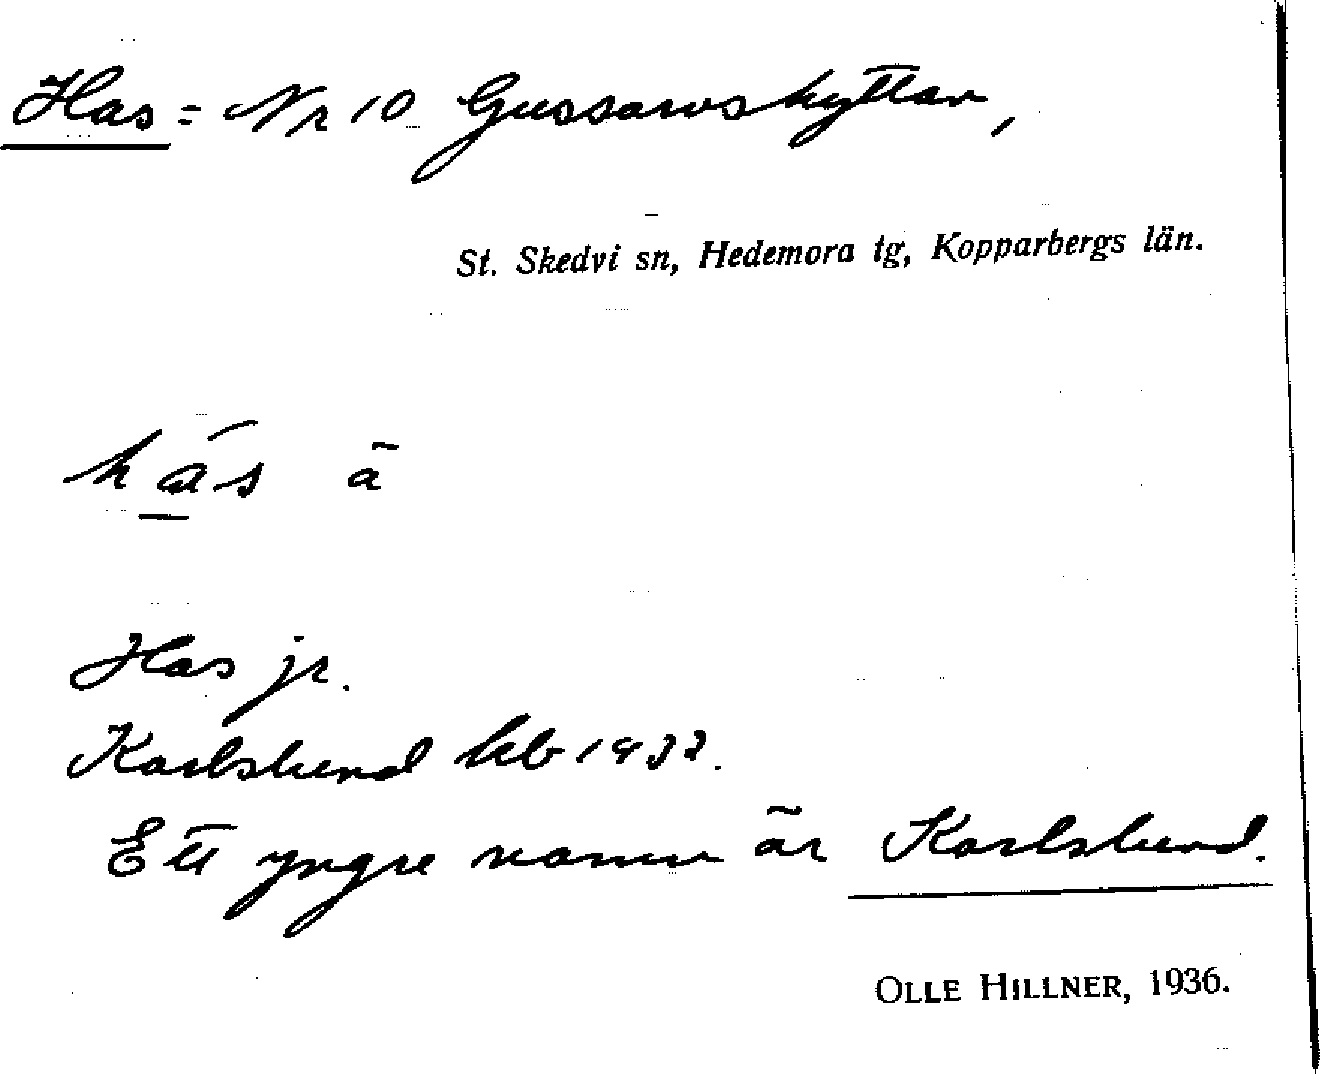 Has = Nr 10 Gussarvshyttan,
St. Skedvi sn, Hedemora tg, Kopparbergs län.
hās ā
Has jr.
Karlslund kb 1937.
Ett yngre namn är Karlslund.
OLLE HILLNER, 1936.